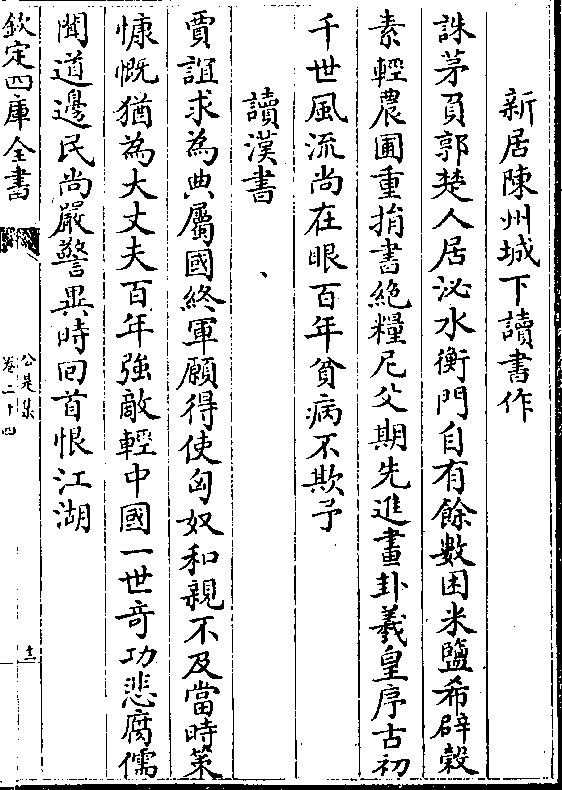 新居陳州城下讀書作
誅茅負郭楚人居泌水衡門自有餘數困米鹽希辟穀
素輕農圃重捐書絶糧尼父期先進畫卦羲皇序古初
千世風流尚在眼百年貧病不欺予
讀漢書
賈誼求為典屬國終軍願得使匈奴和親不及當時策
慷慨猶為大丈夫百年強敵輕中國一世奇功悲腐儒
聞道邊民尚嚴警異時回首恨江湖
欽定四庫全書
公是集
卷二十四